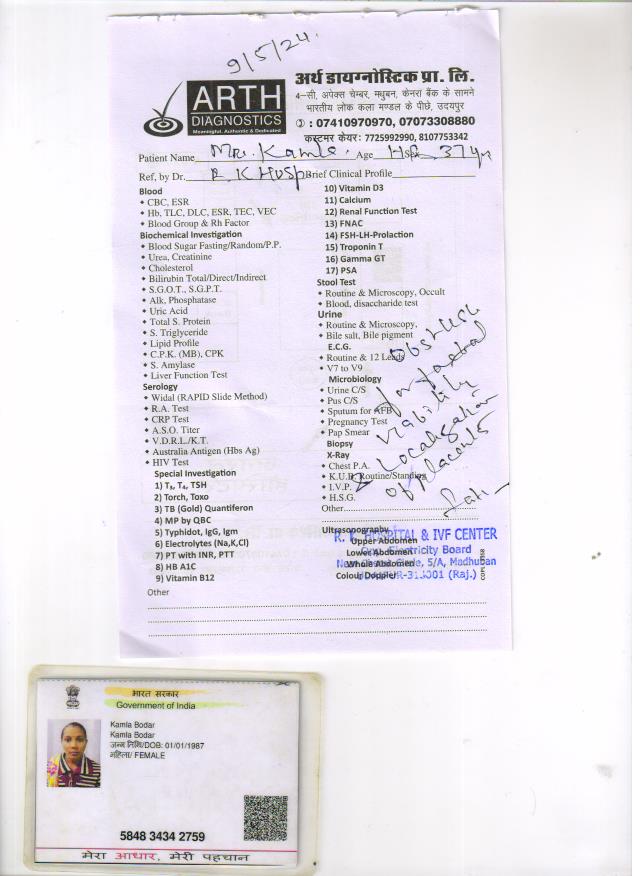 9/5/24.
ARTH
DIAGNOSTICS
Meaningful. Authentic & Dedicated
अर्थ डायग्नोस्टिक प्रा. लि.
4-सी, अपेक्स चेम्बर, मधुबन, केनरा बैंक के सामने
भारतीय लोक कला मण्डल के पीछे, उदयपुर
: 07410970970, 07073308880
कस्टमर केयर: 7725992990, 8107753342
Patient Name Mrs. Kamla. Age 37 yr
Ref, by Dr. R K Hosp Brief Clinical Profile
Blood
CBC, ESR
Hb, TLC, DLC, ESR, TEC, VEC
Blood Group & Rh Factor
Biochemical Investigation
Blood Sugar Fasting/Random/P.P.
Urea, Creatinine
Cholesterol
Bilirubin Total/Direct/Indirect
S.G.O.T., S.G.P.T.
Alk. Phosphatase
Uric Acid
Total S. Protein
S. Triglyceride
Lipid Profile
C.P.K. (MB), CPK
S. Amylase
Liver Function Test
Serology
Widal (RAPID Slide Method)
R.A. Test
CRP Test
A.S.O. Titer
V.D.R.L./K.T.
Australia Antigen (Hbs Ag)
HIV Test
Special Investigation
1) T₃, T₄, TSH
2) Torch, Toxo
3) TB (Gold) Quantiferon
4) MP by QBC
5) Typhidot, IgG, Igm
6) Electrolytes (Na,K,Cl)
7) PT with INR, PTT
8) HB A1C
9) Vitamin B12
Other
10) Vitamin D3
11) Calcium
12) Renal Function Test
13) FNAC
14) FSH-LH-Prolaction
15) Troponin T
16) Gamma GT
17) PSA
Stool Test
Routine & Microscopy, Occult
Blood, disaccharide test
Urine
Routine & Microscopy,
Bile salt, Bile pigment
E.C.G.
Routine & 12 Leads
V7 to V9
Microbiology
Urine C/S
Pus C/S
Sputum for AFB
Pregnancy Test
Pap Smear
Biopsy
X-Ray
Chest P.A.
K.U.B. Routine/Standing
I.V.P.
H.S.G.
Other
Ultrasonography
Upper Abdomen
Lower Abdomen
Whole Abdomen
Colour Doppler
Obst USG
for foetal
viability
& Localisation
of placenta
R. K. HOSPITAL & IVF CENTER
Electricity Board
5/A, Madhuban
UDAIPUR-313001 (Raj.)
भारत सरकार
Government of India
Kamla Bodar
Kamla Bodar
जन्म तिथि/DOB: 01/01/1987
महिला/ FEMALE
5848 3434 2759
मेरा आधार, मेरी पहचान